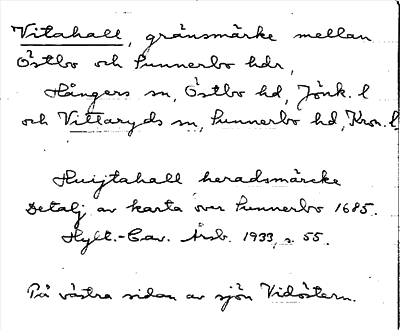 Vitahall, gränsmärke mellan
Östbo och Sunnerbo hdr,
Hångers sn, Östbo hd, Jönk. l
och Vittaryds sn, Sunnerbo hd, Kron. l.
Huijtahall heradsmärcke
Detalj av karta över Sunnerbo 1685.
Hylt.-Cav. Årsb. 1933, s. 55.
På västra sidan av sjön Vidöstern.